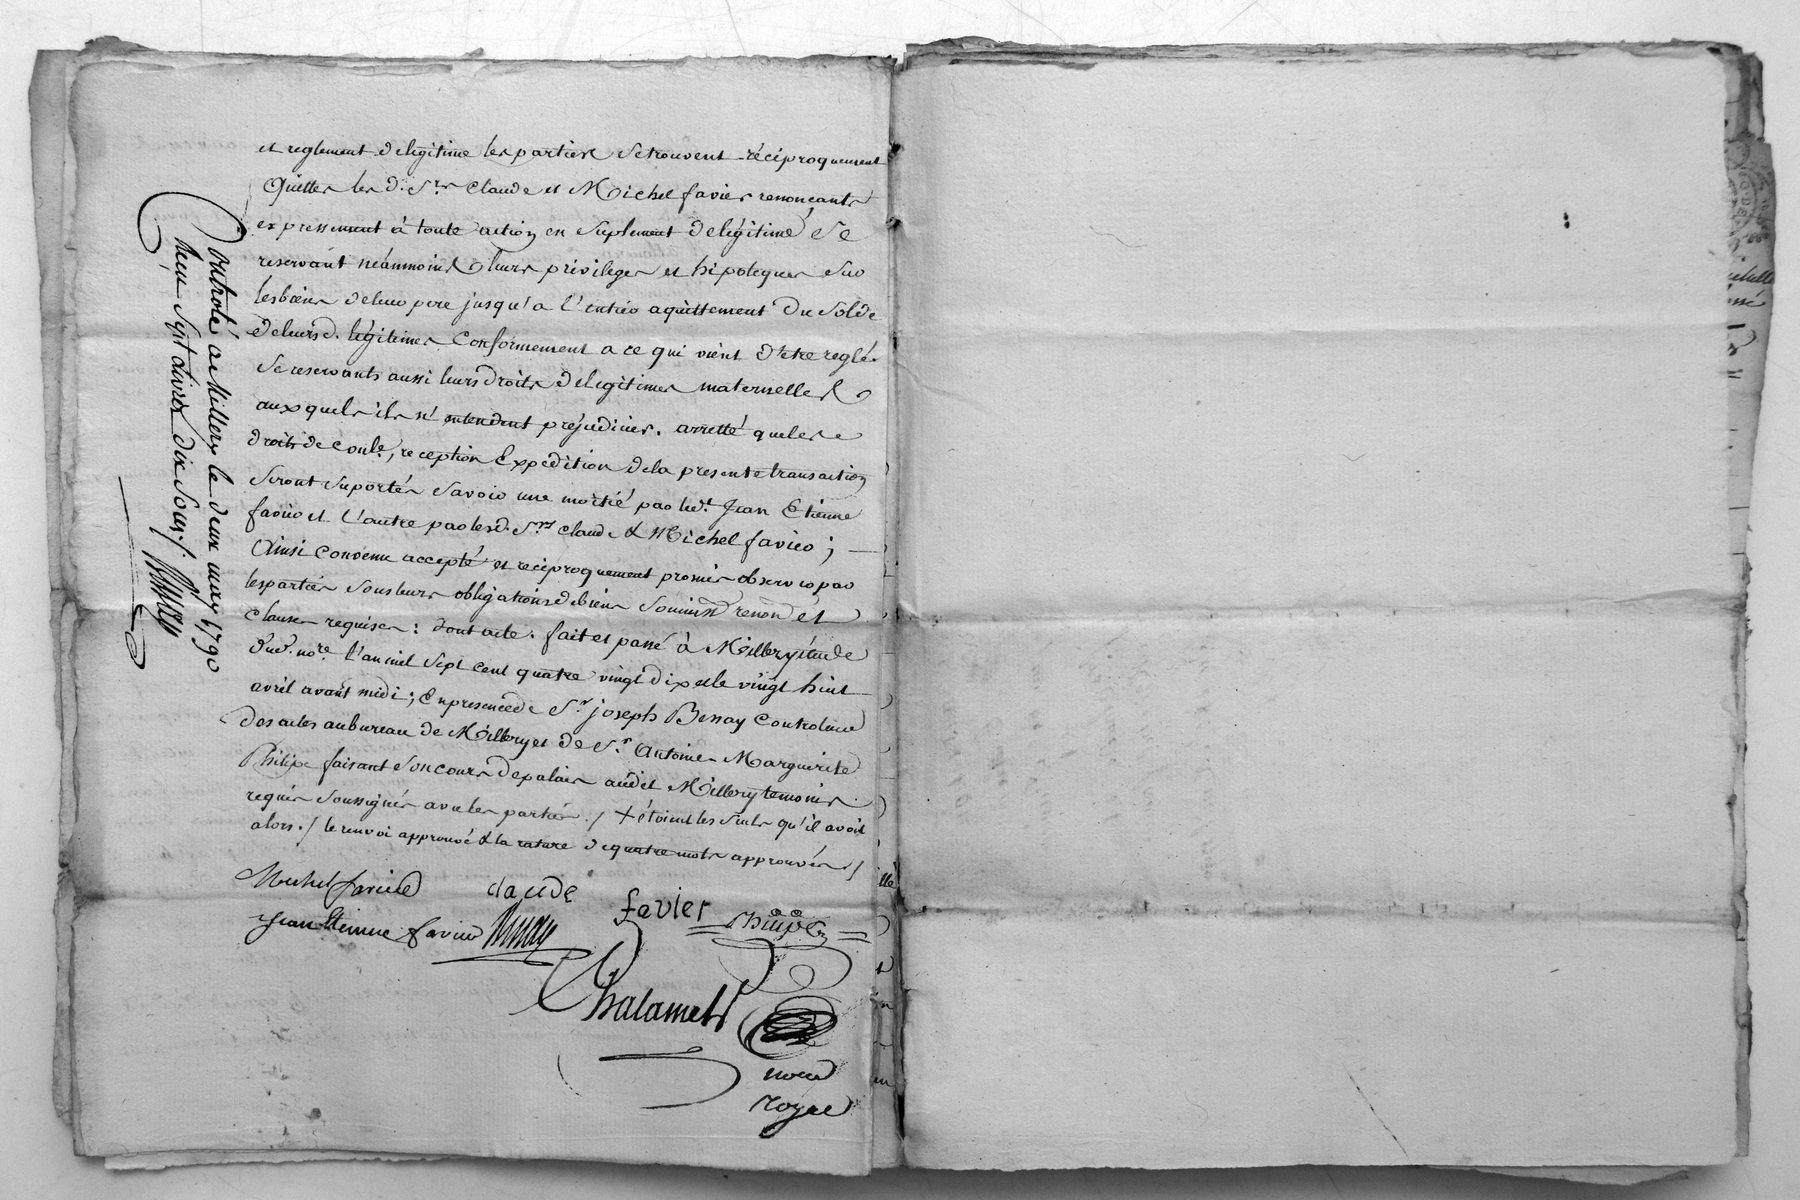 et reglement delegitime les parties setrouvent réciproquement
Quittes les d. Srs Claude et Michel favier renonçants
expressement à toute action en suplement delegitimé se
reservant néanmoins leurs privileges et hipoteques sur
lesbiens deleur pere jusqu'a l'entier aquittement du solde
deleursd. légitimes Conformement a ce qui vient d'etre reglé.
se reservants aussi leurs droits delegitimes maternelles
auxquels ils n'entendent préjudicier. arretté queles
droits de conlé, reception Expedition dela presente transaction
seront suportés savoir une moitié par led. Jean Etienne
favier et l'autre par lesd. Srs claude & Michel favier;
Ainsi convenu accepté et reciproquement promis observer par
lesparties sous leurs obligations debiens soumiss renon et
clauses requises: dont acte. fait et passé à Millery étude
dud. nore l'an mil sept cent quatre vingt dix et le vingt huit
avril avant midi; En presence de Sr joseph Bessay Controleur
des actes au bureau de Millery et de Sr Antoine Marguerite
Philipe faisant son cours depalais audit Millery temoins
requis soussignés avec les parties ./ + étoient les seuls qu'il avoit
alors ./ le renvoi approuvé & la rature de quatre mots approuvés /
Michel favier claude favier
Jean Etienne favier Bessay Philipe
Chalamel
nore
royal
Controlé a Millery le deux may 1790
Reçu sept livres dix sous ./. Bessay